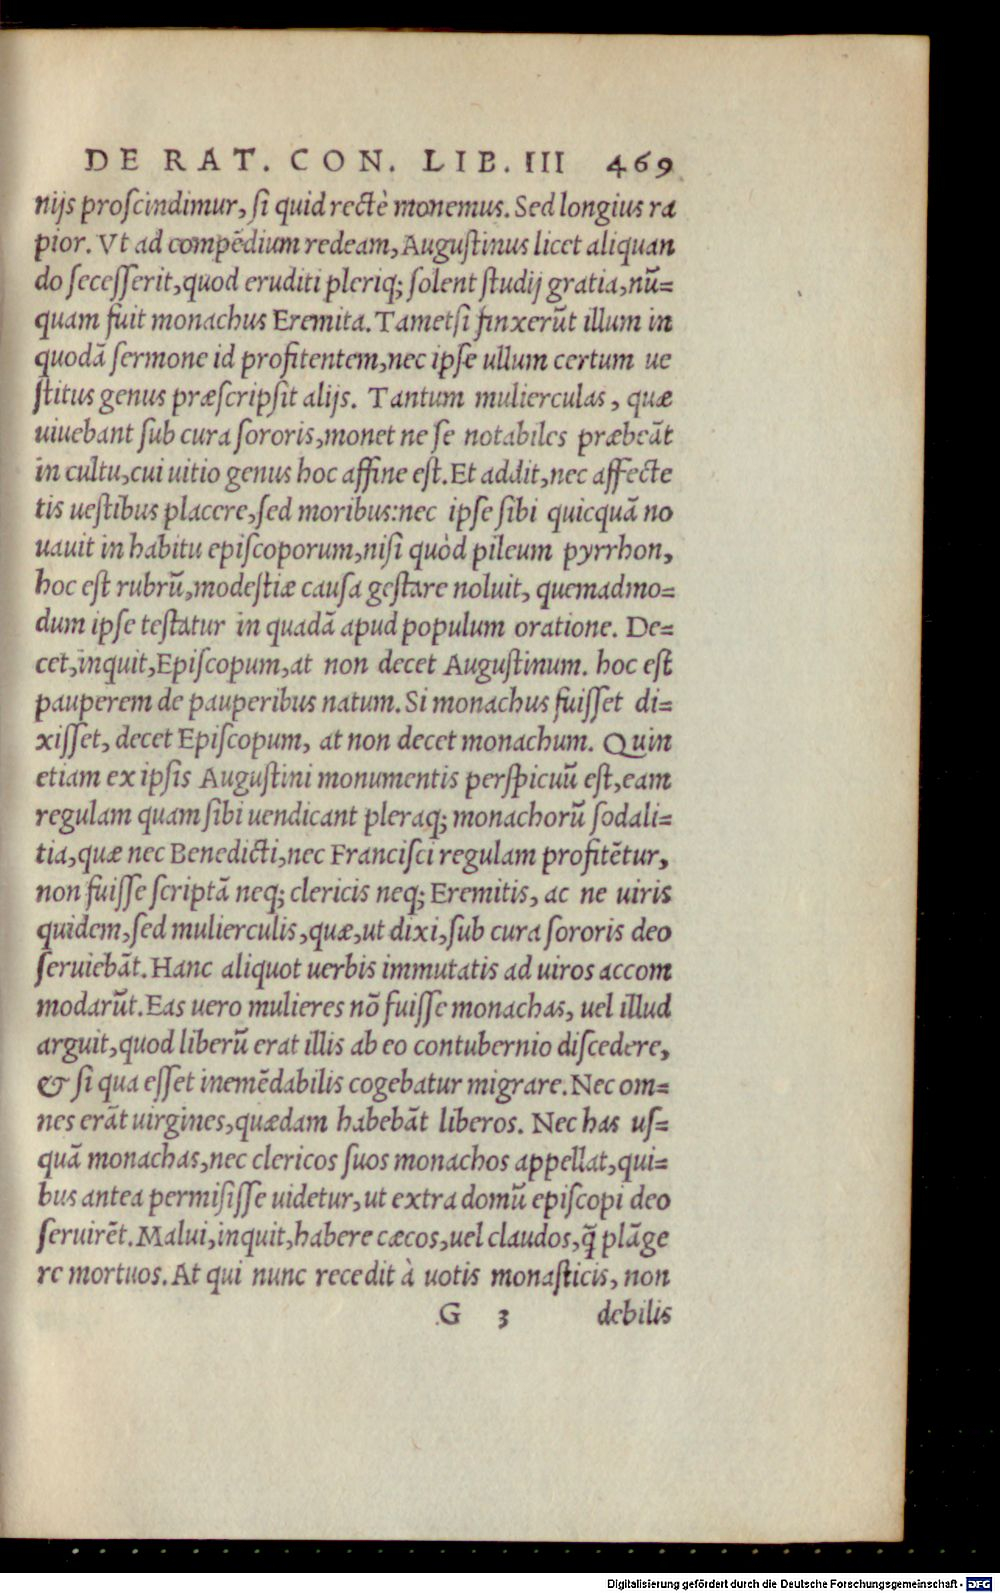 DE RAT. CON. LIB. III 469
nijs proſcindimur, ſi quid rectè monemus. Sed longius ra
pior. Vt ad compēdium redeam, Auguſtinus licet aliquan
do ſeceſſerit, quod eruditi pleriq; ſolent ſtudij gratia, nū=
quam fuit monachus Eremita. Tametſi finxerūt illum in
quodā ſermone id profitentem, nec ipſe ullum certum ue
ſtitus genus præſcripſit alijs. Tantum mulierculas, quæ
uiuebant ſub cura ſororis, monet ne ſe notabiles præbeāt
in cultu, cui uitio genus hoc affine eſt. Et addit, nec affecte
tis ueſtibus placere, ſed moribus: nec ipſe ſibi quicquā no
uauit in habitu epiſcoporum, niſi quòd pileum pyrrhon,
hoc eſt rubrū, modeſtiæ cauſa geſtare noluit, quemadmo=
dum ipſe teſtatur in quadā apud populum oratione. De=
cet, inquit, Epiſcopum, at non decet Auguſtinum. hoc eſt
pauperem de pauperibus natum. Si monachus fuiſſet di=
xiſſet, decet Epiſcopum, at non decet monachum. Quin
etiam ex ipſis Auguſtini monumentis perſpicuū eſt, eam
regulam quam ſibi uendicant pleraq; monachorū ſodali=
tia, quæ nec Benedicti, nec Franciſci regulam profitētur,
non fuiſſe ſcriptā neq; clericis neq; Eremitis, ac ne uiris
quidem, ſed mulierculis, quæ, ut dixi, ſub cura ſororis deo
ſeruiebāt. Hanc aliquot uerbis immutatis ad uiros accom
modarūt. Eas uero mulieres nō fuiſſe monachas, uel illud
arguit, quod liberū erat illis ab eo contubernio diſcedere,
& ſi qua eſſet inemēdabilis cogebatur migrare. Nec om=
nes erāt uirgines, quædam habebāt liberos. Nec has uſ=
quā monachas, nec clericos ſuos monachos appellat, qui=
bus antea permiſiſſe uidetur, ut extra domū epiſcopi deo
ſeruirēt. Malui, inquit, habere cæcos, uel claudos, q̄ plāge
re mortuos. At qui nunc recedit à uotis monaſticis, non
G 3 debilis
Digitalisierung gefördert durch die Deutsche Forschungsgemeinschaft - DFG